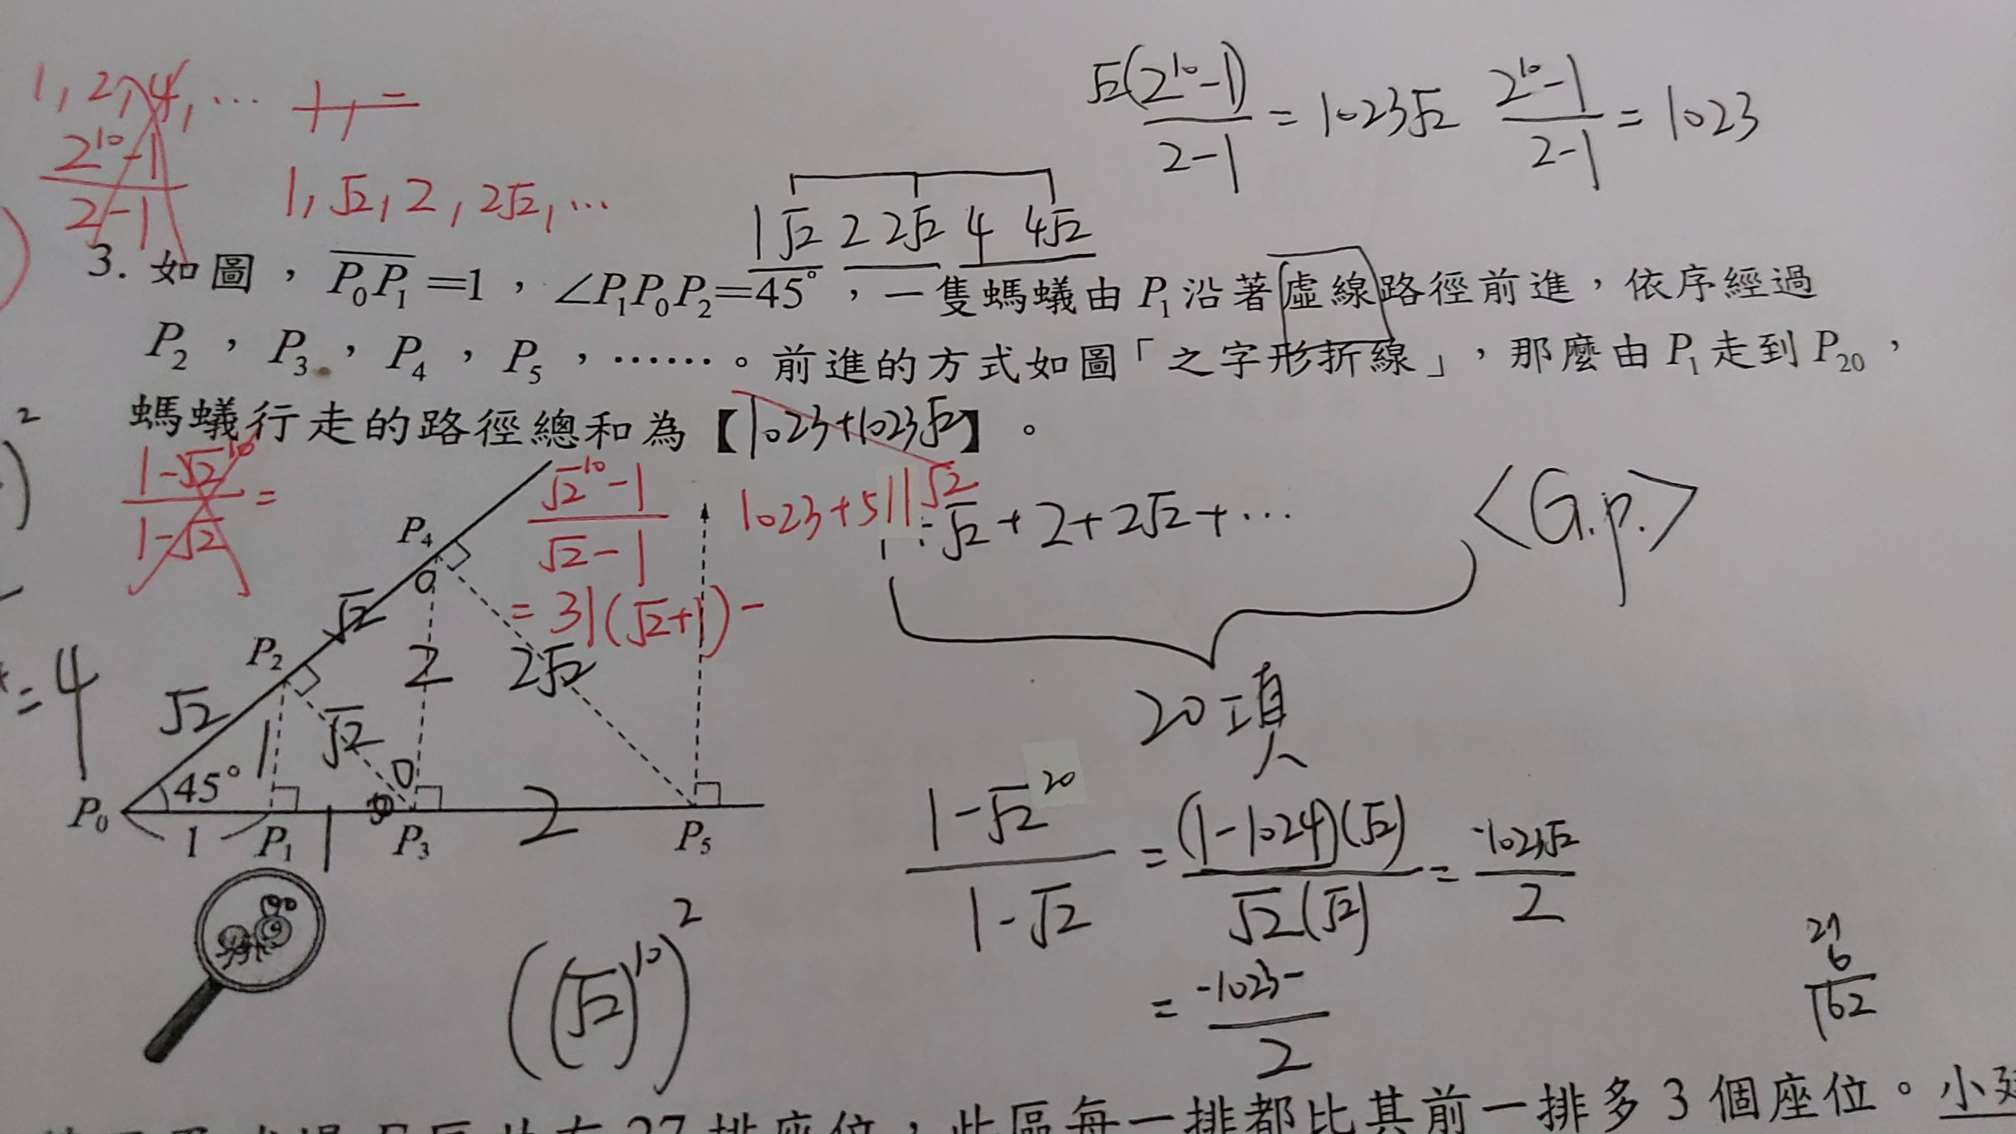 1, 2, 4, …
2¹⁰-1
2-1
1, √2, 2, 2√2, …
√2(2¹⁰-1)
2-1
= 1023√2
2¹⁰-1
2-1
= 1023
1 √2 2 2√2 4 4√2
3. 如圖，P₀P₁=1，∠P₁P₀P₂=45°，一隻螞蟻由 P₁ 沿著虛線路徑前進，依序經過
P₂，P₃，P₄，P₅，……。前進的方式如圖「之字形折線」，那麼由 P₁ 走到 P₂₀，
螞蟻行走的路徑總和為【1023+1023√2】。
1-√2¹⁰
1-√2
=
√2¹⁰-1
√2-1
= 31(√2+1)-
1023+511√2
√2+2+2√2+…
<G.p.>
20項
P₄
√2
P₂
√2
2
2√2
=4
1
√2
45°
P₀
1
P₁
1
P₃
2
P₅
1-√2²⁰
1-√2
=
(1-1024)(√2)
√2(√2)
=
-1023√2
2
=
-1023-
2
((√2)¹⁰)²
27
6
162
27 排座位，此區每一排都比其前一排多 3 個座位。小